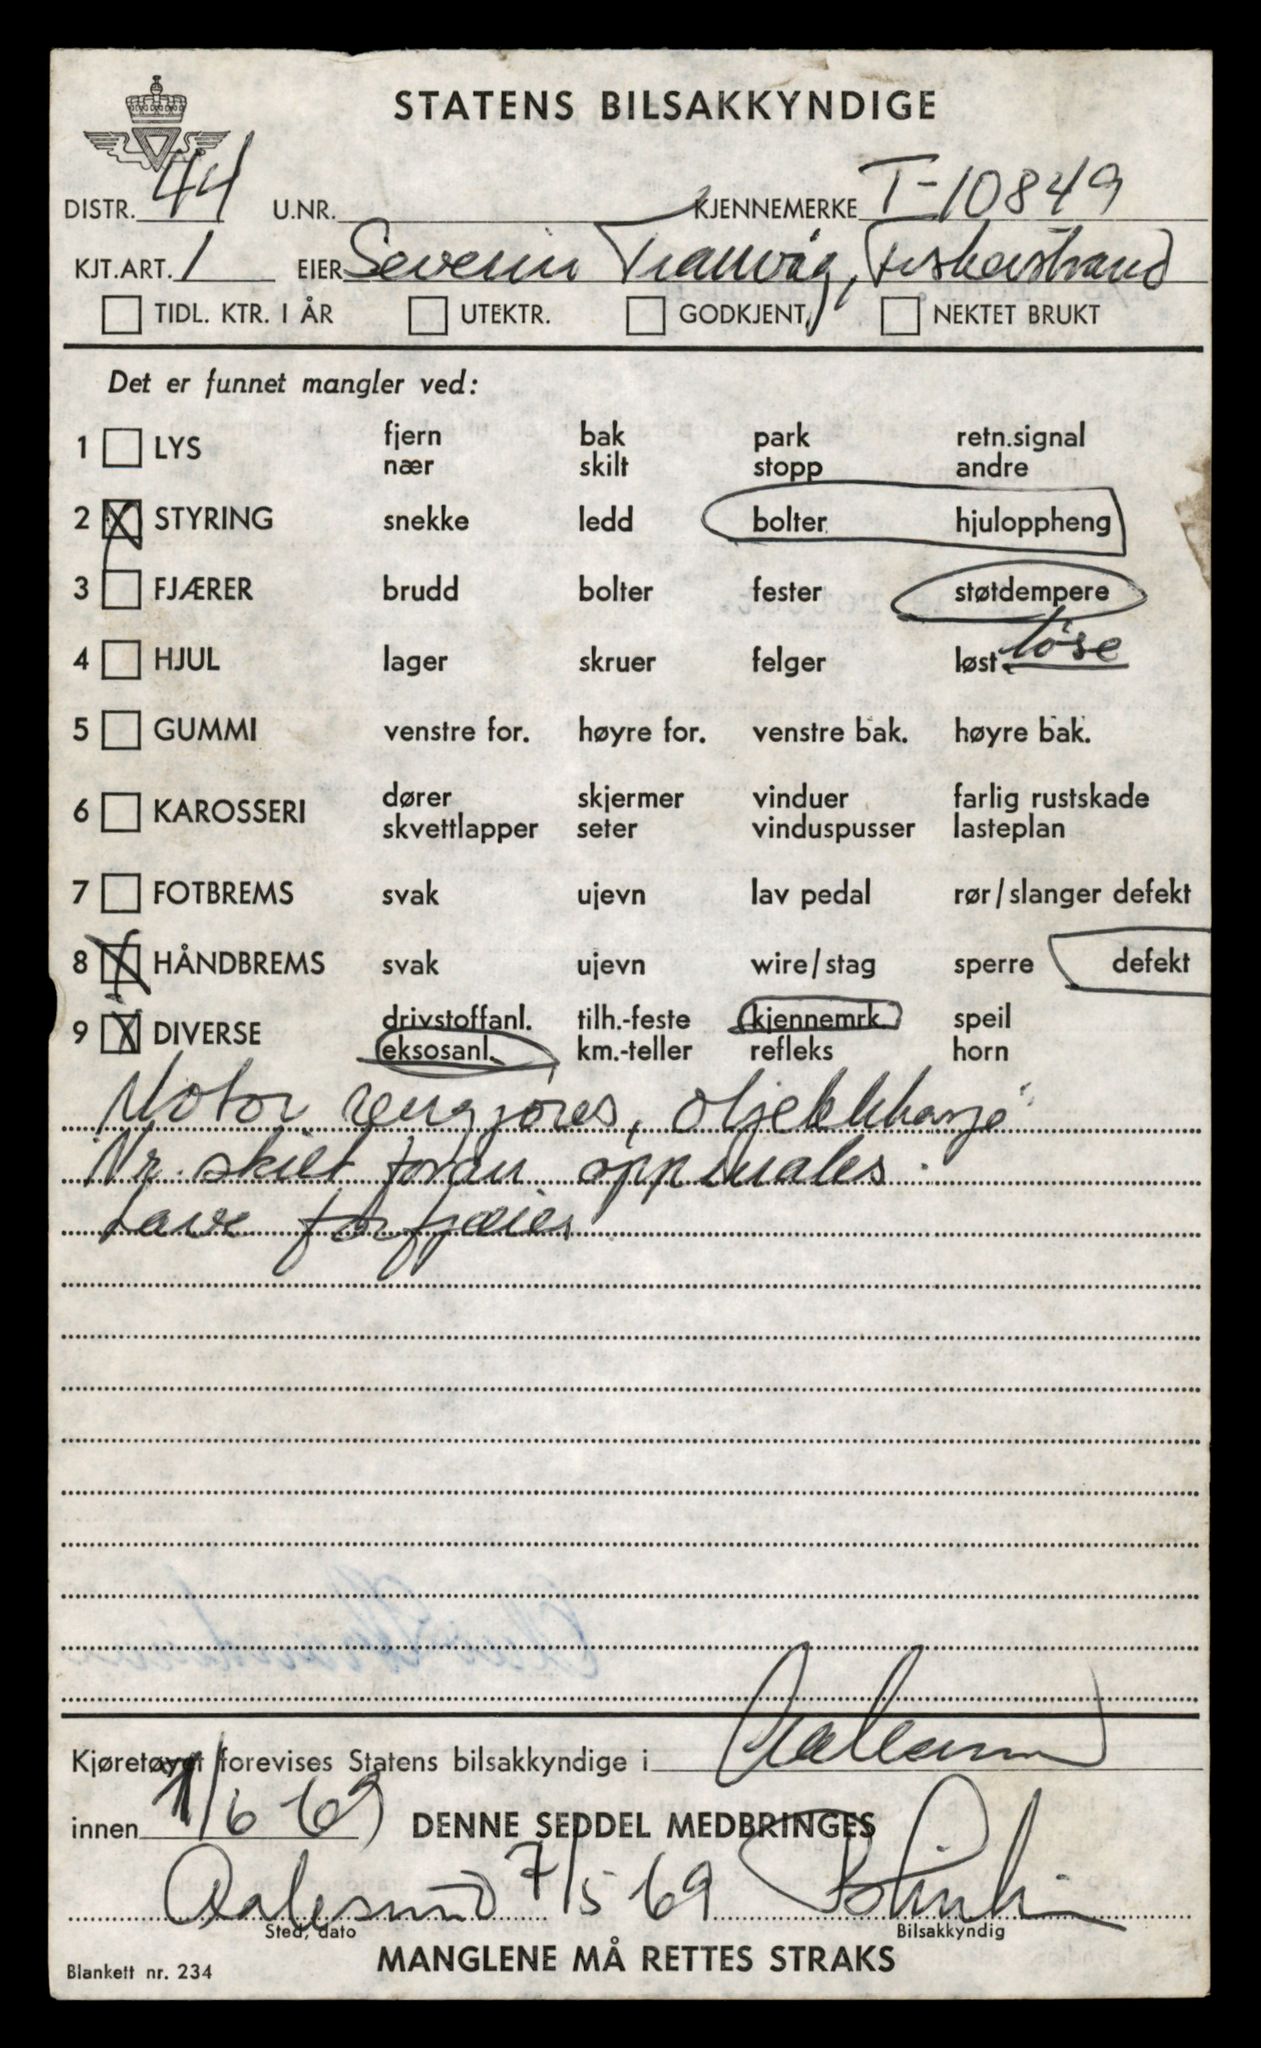 STATENS BILSAKKYNDIGE
DISTR. 44 U.NR. KJENNEMERKE T-10849
KJT.ART. 1 EIER Severin Tranvåg, Fiskerstrand
TIDL. KTR. I ÅR UTEKTR. GODKJENT NEKTET BRUKT
Det er funnet mangler ved:
1 LYS fjern bak park retn.signal
nær skilt stopp andre
2 X STYRING snekke ledd bolter hjuloppheng
3 FJÆRER brudd bolter fester støtdempere
4 HJUL lager skruer felger løst løse
5 GUMMI venstre for. høyre for. venstre bak. høyre bak.
6 KAROSSERI dører skjermer vinduer farlig rustskade
skvettlapper seter vinduspusser lasteplan
7 FOTBREMS svak ujevn lav pedal rør/slanger defekt
8 X HÅNDBREMS svak ujevn wire/stag sperre defekt
9 X DIVERSE drivstoffanl. tilh.-feste kjennemrk. speil
eksosanl. km.-teller refleks horn
Motor rengjøres, oljelekkasje
Nr. skilt foran oppmales.
Lave forfjærer
Kjøretøyet forevises Statens bilsakkyndige i Aalesund
innen 1/6 69 DENNE SEDDEL MEDBRINGES
Aalesund 7/5 69
Sted, dato Bilsakkyndig
MANGLENE MÅ RETTES STRAKS
Blankett nr. 234